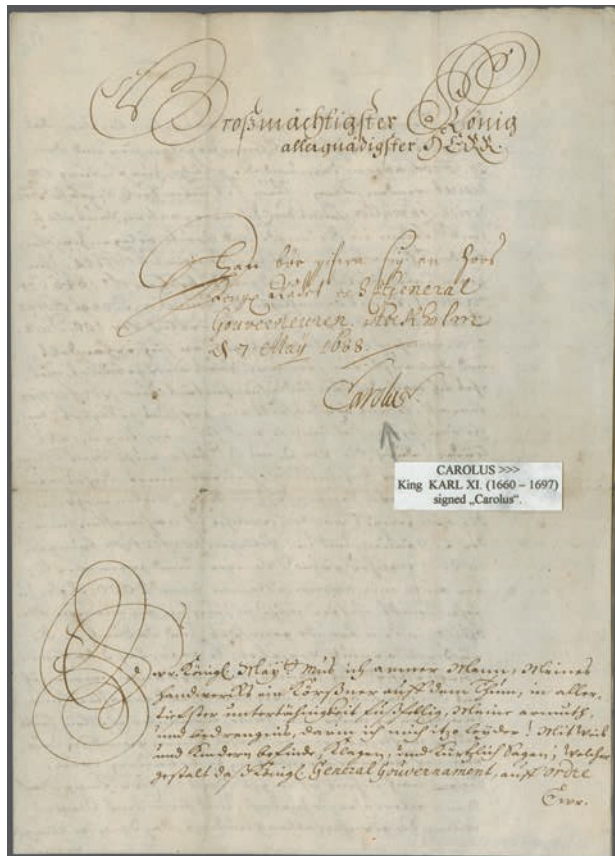 Großmächtigster König
allergnädigster HERR.
General
Gouverneuren. Stockholm
d 7 May 1688.
Carolus
CAROLUS >>>
King KARL XI. (1660 – 1697)
signed „Carolus“.
Ewr. Königl. May:t Mus ich armer Mann, Meines
Handwerks ein Körßner auff dem Thum, in aller-
tiefster unterthänigkeit fußfällig, Meine armuth,
und bedrengnis, darin ich mich itzo leyder! Mit Weib
und Kindern befinde, klagen, und kürtzlich sagen; Welcher
gestalt daß Königl. General Gouvernament, auff ordre
Ewr.